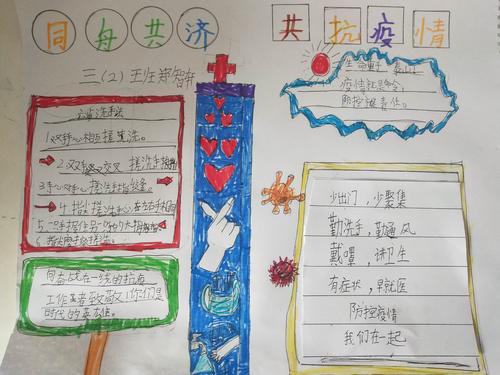 同舟共济
共抗疫情
三(2)王
洗手法
1.双手心相互搓洗。
2.双手交叉搓洗手指
3.手心对手心搓洗手
4.指尖搓洗手心,左右手相
5.一手握住另一
6.
向奋战在一线的抗疫
工作者致敬!你们是
时代的英雄。
生命重于泰山。
疫情就是命令,
防控就是责任。
少出门,少聚集
勤洗手,勤通风
戴罩,讲卫生
有症状,早就医
防控疫情
我们在一起